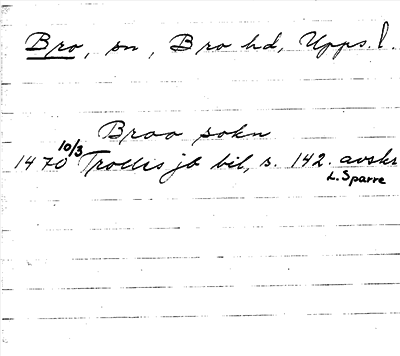 Bro, sn, Bro hd, Upps. l.
Broo sokn
1470 10/3 Trolles jb bil, s. 142. avskr
L. Sparre